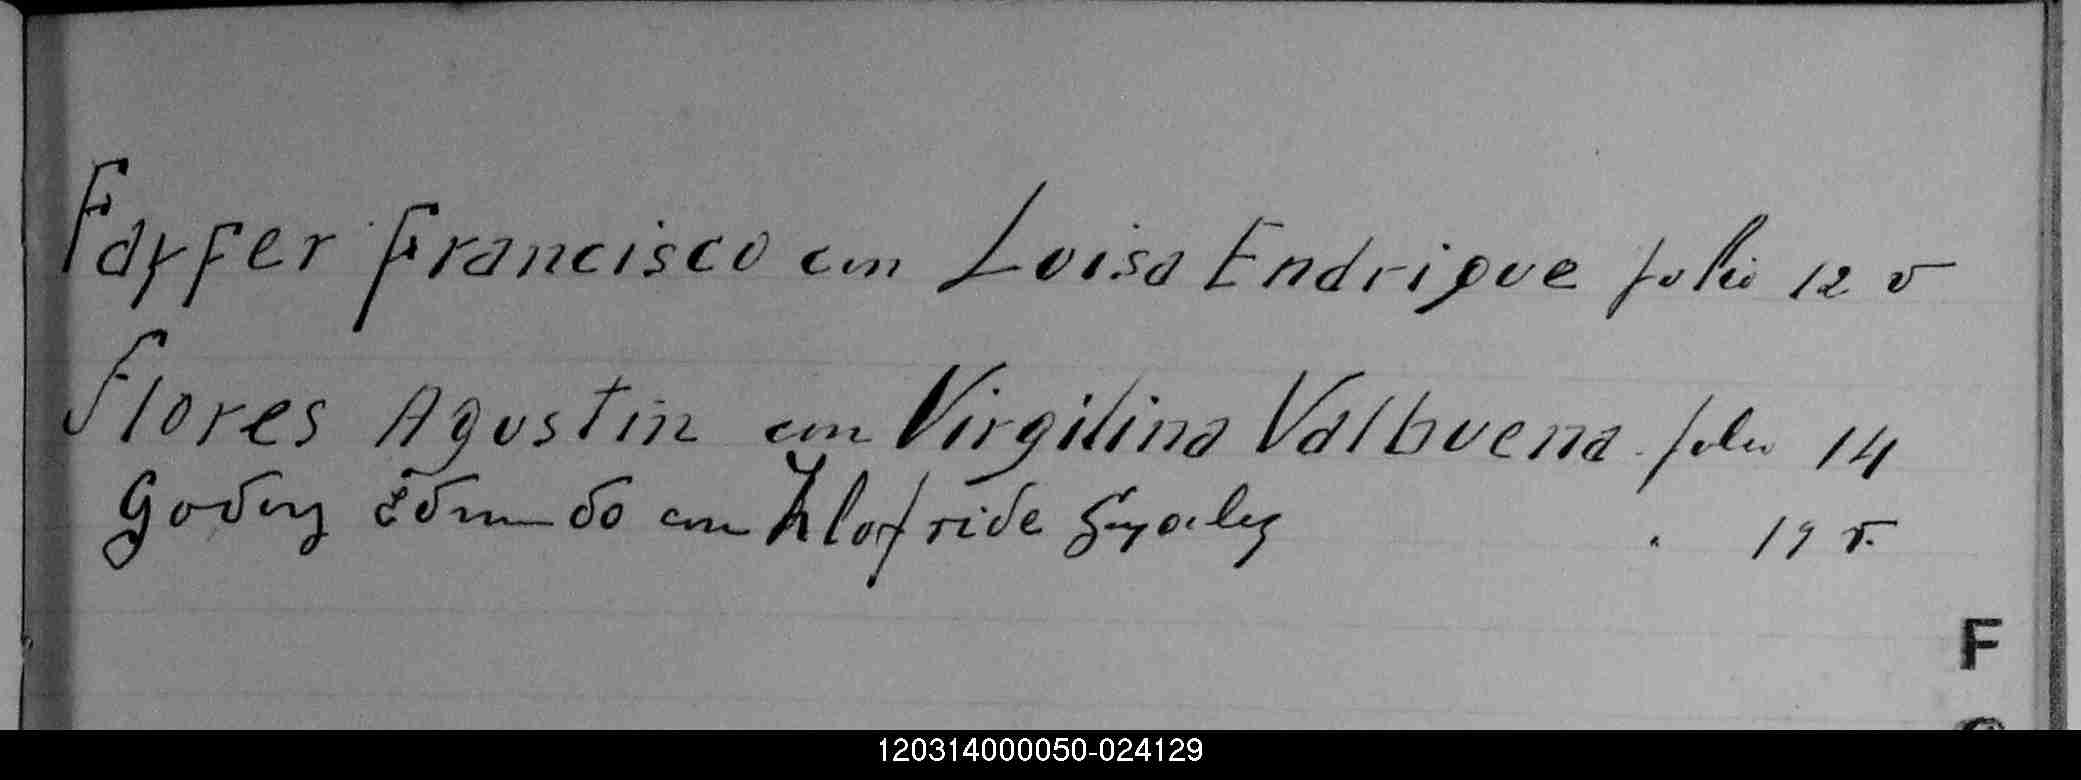 Fayfer Francisco con Loisa Endrique folio 12 v
Flores Agustin con Virgilina Valbuena folio 14
Godoy Edmundo con Klofride Gonzalez " 19 v.
F
120314000050-024129